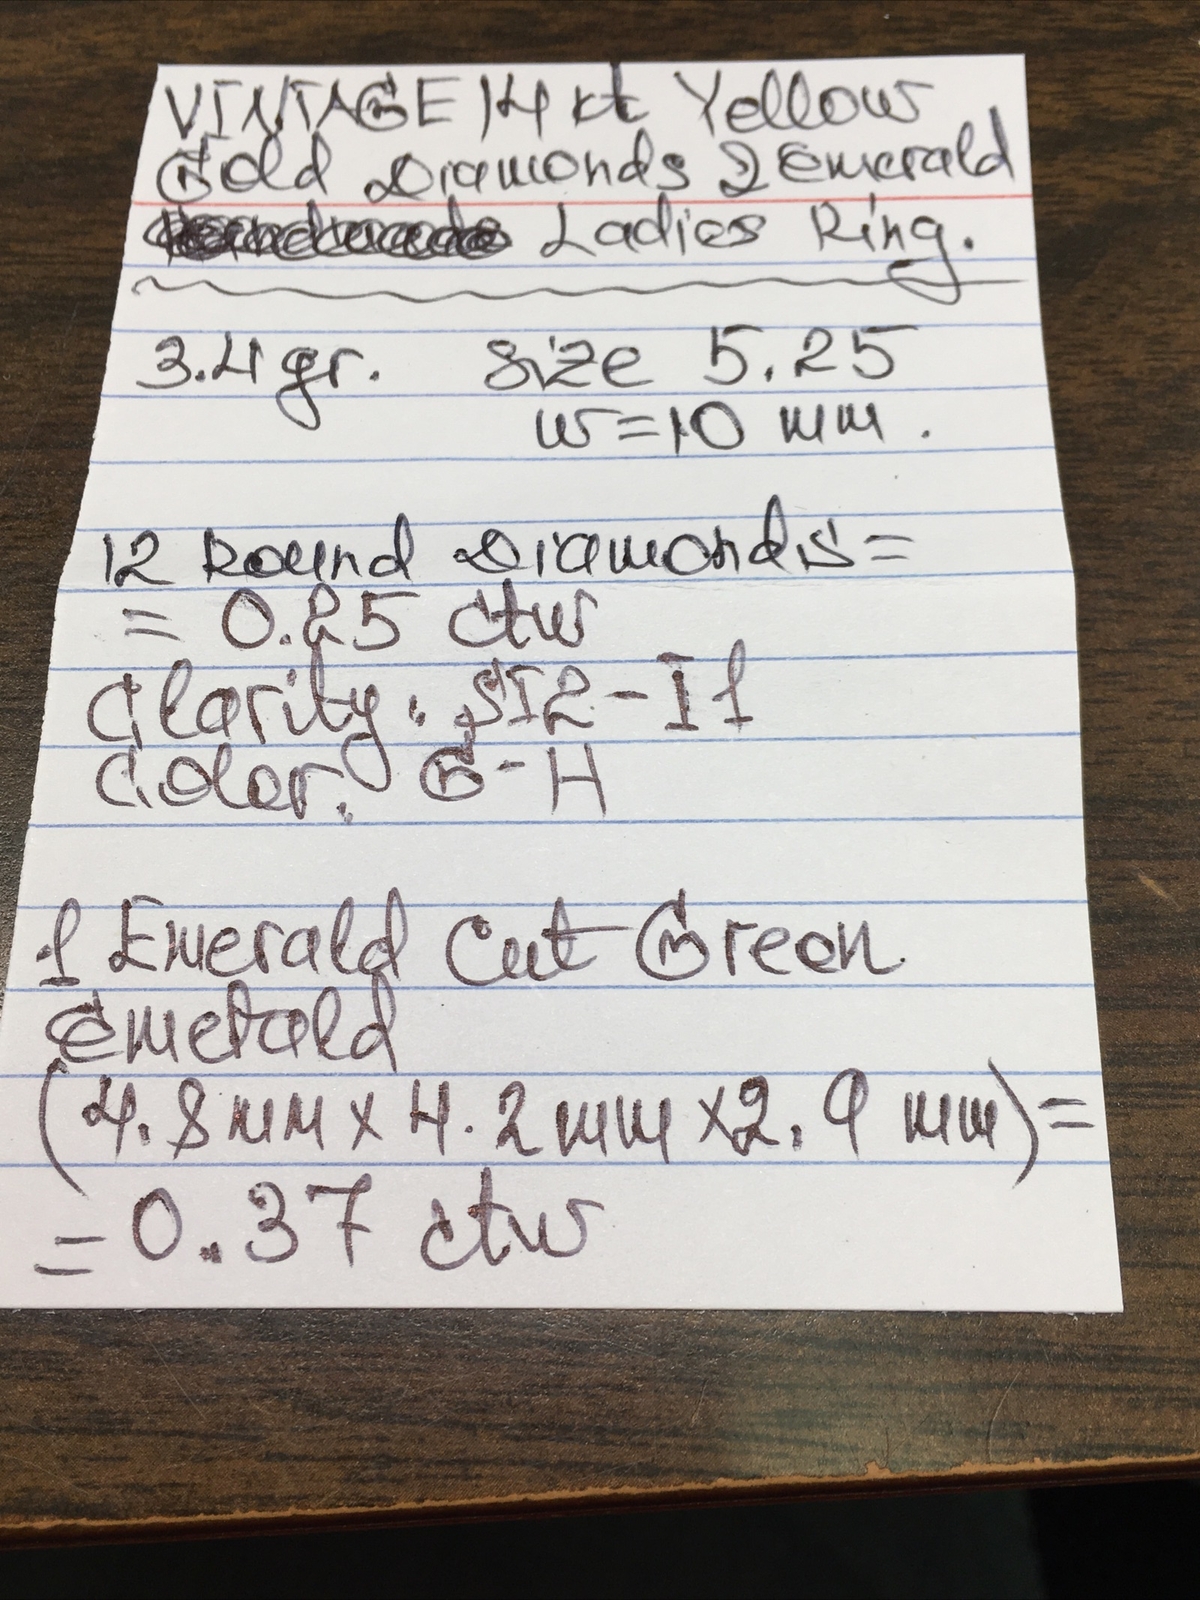 VINTAGE 14 kt Yellow
Gold Diamonds & Emerald
Ladies Ring.
3.4 gr. Size 5.25
w=10 mm.
12 Round Diamonds=
= 0.25 ctw
Clarity: SI2-I1
Color: G-H
1 Emerald Cut Green
Emerald
(4.8mm x 4.2mm x2.9 mm)=
= 0.37 ctw